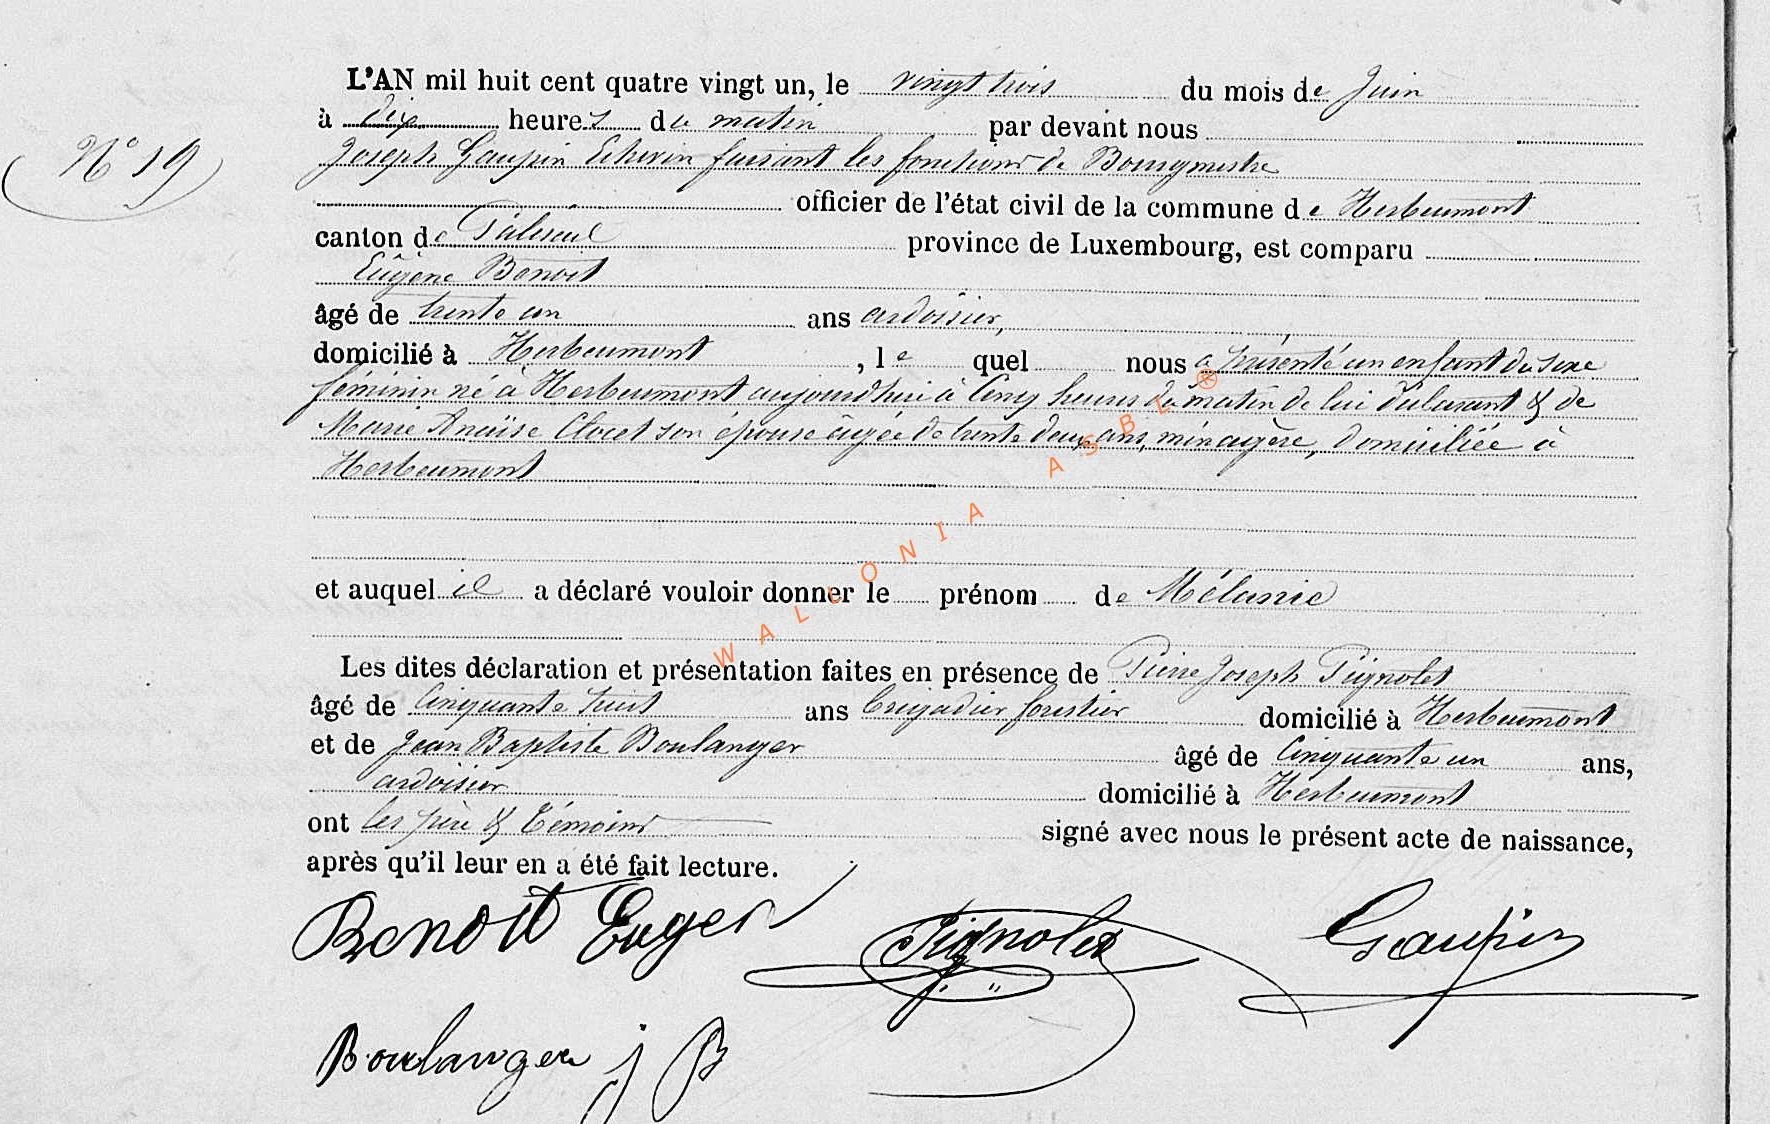 L'AN mil huit cent quatre vingt un, le vingt trois du mois de Juin
à dix heures du matin par devant nous
N° 19
Joseph Gaupin Echevin faisant les fonctions de Bourgmestre
officier de l'état civil de la commune de Herbeumont
canton de Paliseul province de Luxembourg, est comparu
Eugène Benoit
âgé de trente un ans ardoisier,
domicilié à Herbeumont, lequel nous a présenté un enfant du sexe
féminin né à Herbeumont aujourdhui à cinq heures du matin de lui déclarant & de
Marie Anaïse Clocet son épouse âgée de trente deux ans, ménagère, domiciliée à
Herbeumont
et auquel il a déclaré vouloir donner le prénom de Mélanie
Les dites déclaration et présentation faites en présence de Pierre Joseph Pignolet
âgé de cinquante huit ans brigadier forestier domicilié à Herbeumont
et de Jean Baptiste Boulanger âgé de cinquante un ans,
ardoisier domicilié à Herbeumont
ont les père & témoins signé avec nous le présent acte de naissance,
après qu'il leur en a été fait lecture.
Benoit Eugen Pignolet Gaupin
Boulanger j B
WALLONIA ASBL ®